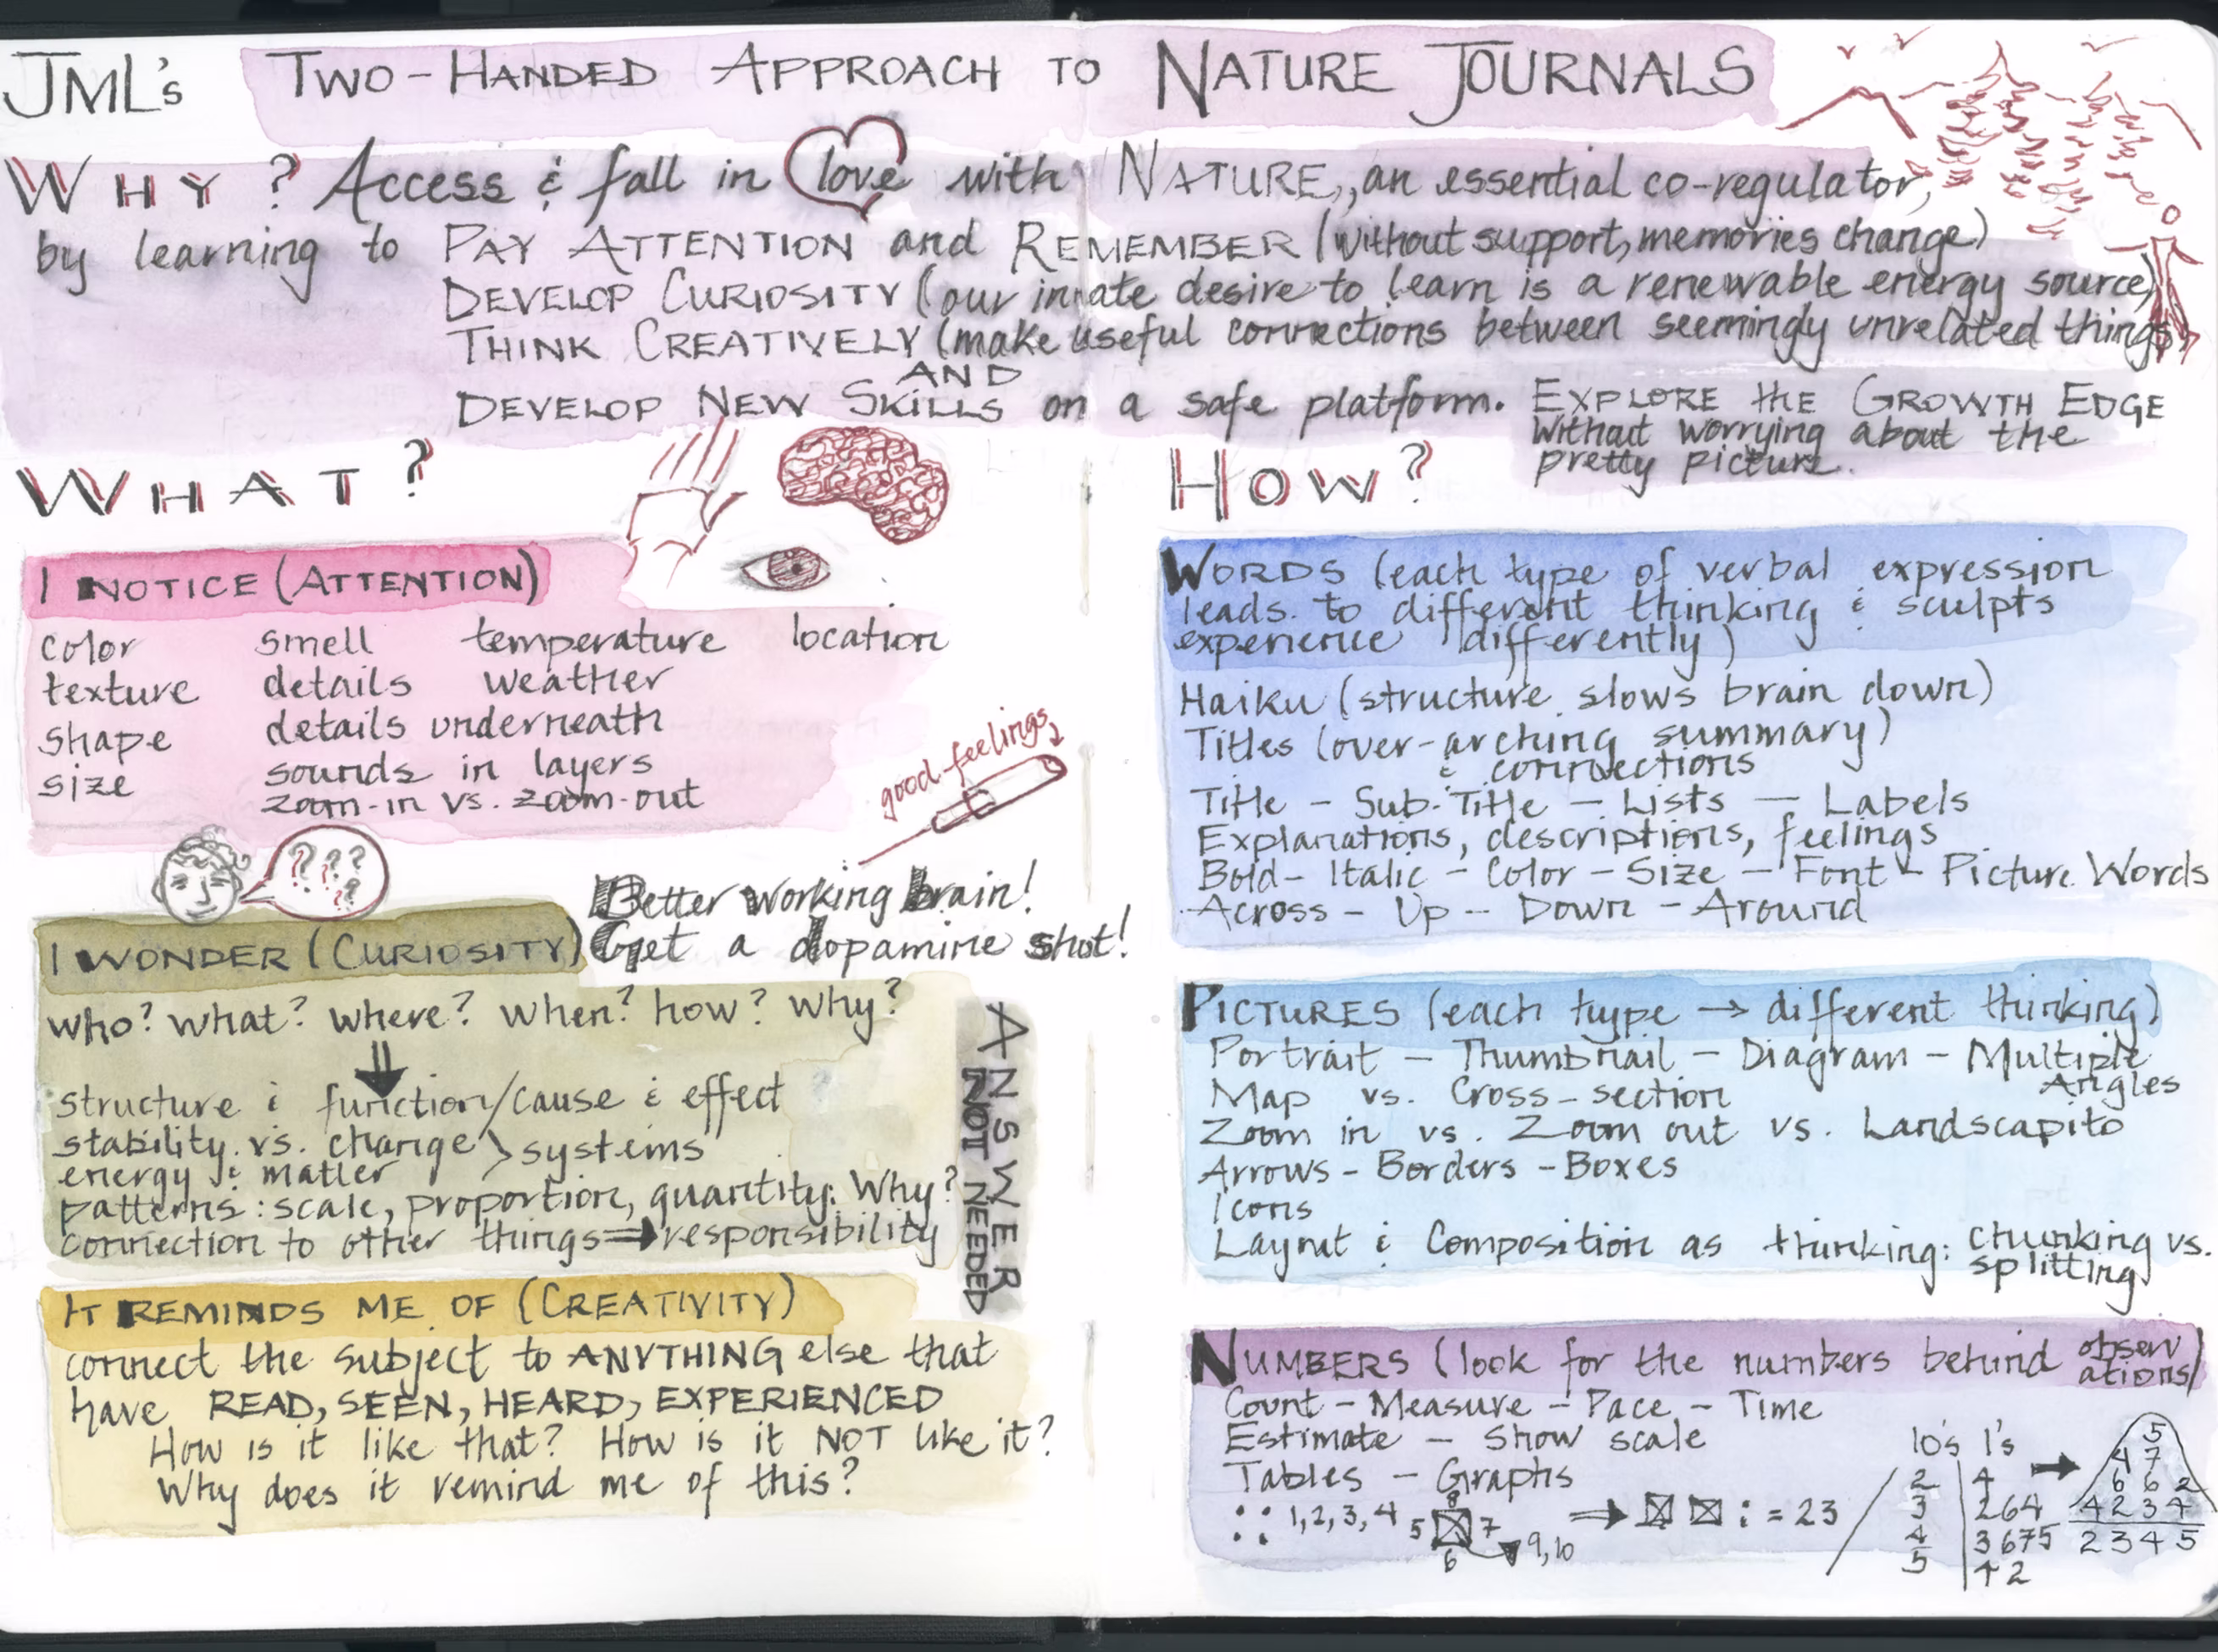 JML's TWO-HANDED APPROACH TO NATURE JOURNALS
WHY? Access & fall in love with NATURE, an essential co-regulator,
by learning to PAY ATTENTION and REMEMBER (without support, memories change)
DEVELOP CURIOSITY (our innate desire to learn is a renewable energy source)
THINK CREATIVELY (make useful connections between seemingly unrelated things)
AND
DEVELOP NEW SKILLS on a safe platform. EXPLORE the GROWTH EDGE
without worrying about the
pretty picture.
WHAT?
I NOTICE (ATTENTION)
color smell temperature location
texture details weather
shape details underneath
size sounds in layers
zoom-in vs. zoom-out
good feelings
? ? ? ?
Better working brain!
Get a dopamine shot!
I WONDER (CURIOSITY)
who? what? where? when? how? why?
structure & function/cause & effect
stability vs. change > systems
energy & matter
patterns: scale, proportion, quantity. Why?
connection to other things ⇒ responsibility
ANSWER
NOT NEEDED
IT REMINDS ME OF (CREATIVITY)
connect the subject to ANYTHING else that
have READ, SEEN, HEARD, EXPERIENCED
How is it like that? How is it NOT like it?
Why does it remind me of this?
HOW?
WORDS (each type of verbal expression
leads to different thinking & sculpts
experience differently)
Haiku (structure slows brain down)
Titles (over-arching summary)
& connections
Title - Sub-Title - Lists - Labels
Explanations, descriptions, feelings
Bold - Italic - Color - Size - Font - Picture Words
Across - Up - Down - Around
PICTURES (each type → different thinking)
Portrait - Thumbnail - Diagram - Multiple
Angles
Map vs. Cross-section
Zoom in vs. Zoom out vs. Landscapito
Arrows - Borders - Boxes
Icons
Layout & Composition as thinking: chunking vs.
splitting
NUMBERS (look for the numbers behind observ
ations)
Count - Measure - Pace - Time
Estimate - Show scale
Tables - Graphs
1, 2, 3, 4 5 8 7 6 9, 10 ⇒ : = 23
10's 1's
2 4
3 264
4 3675
5 42
→
5
4 7
6 6 2
4 2 3 4
2 3 4 5